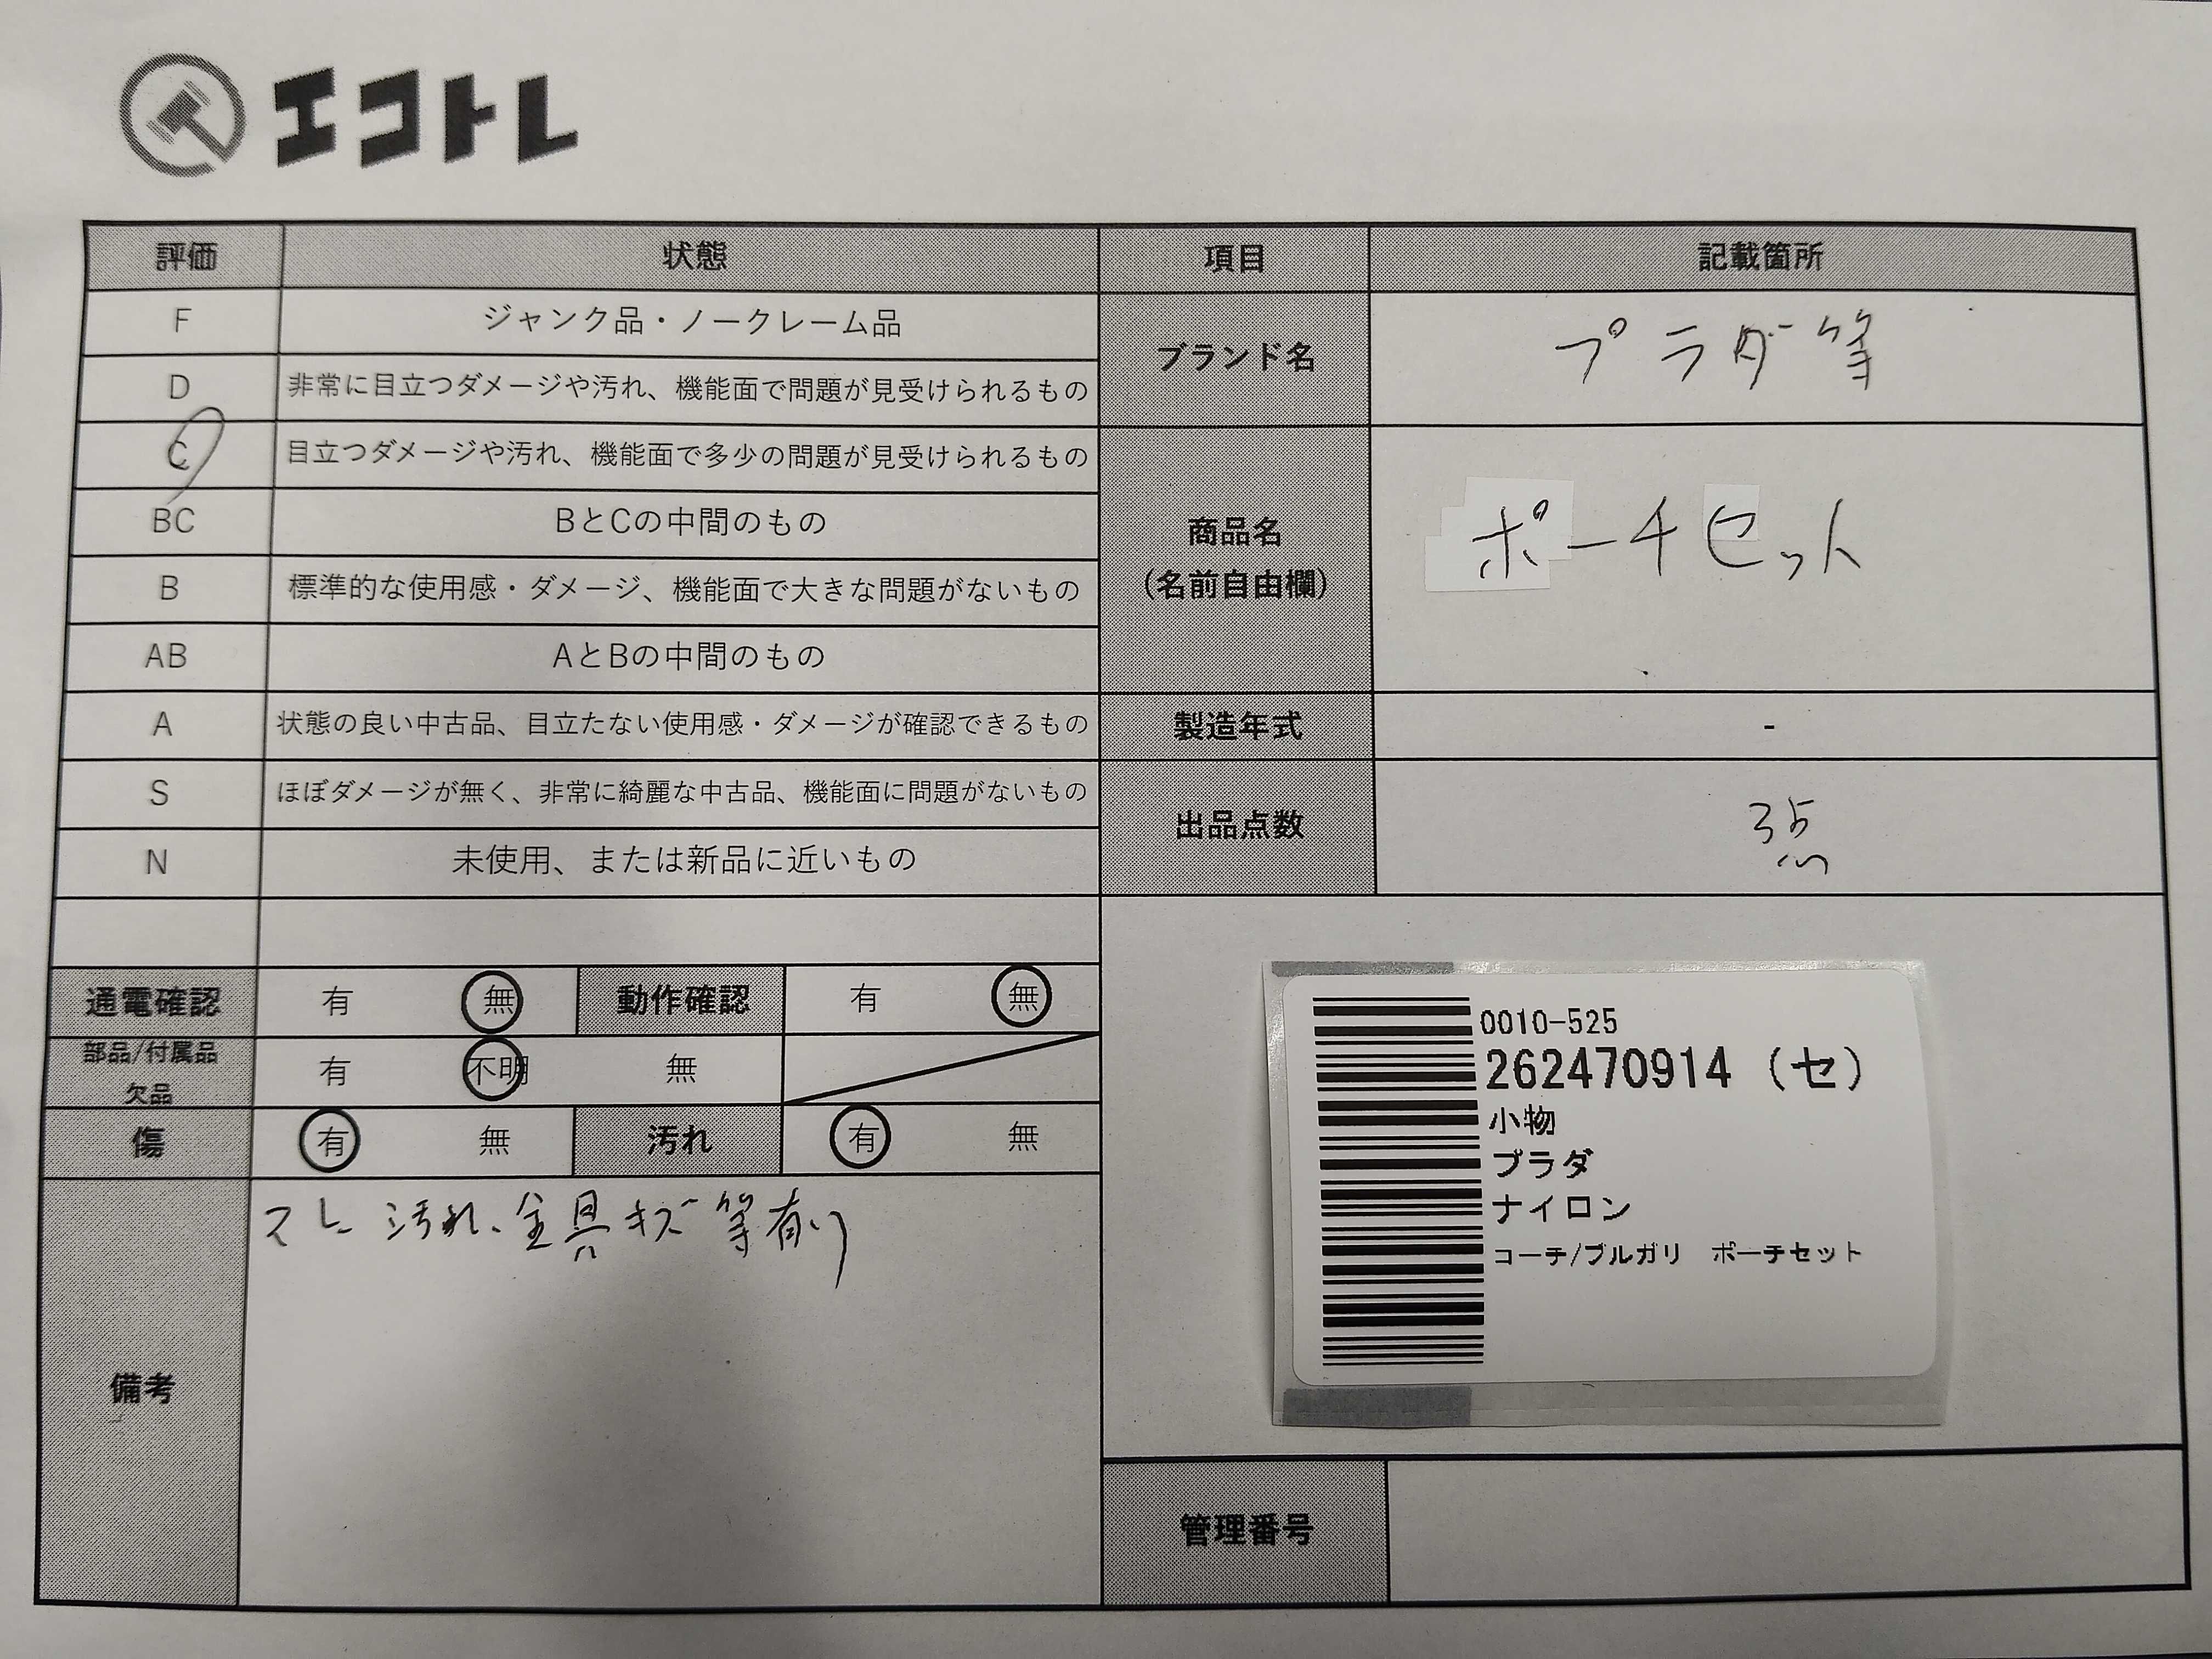 エコトレ
評価 状態 項目 記載箇所
F ジャンク品・ノークレーム品
D 非常に目立つダメージや汚れ、機能面で問題が見受けられるもの
C 目立つダメージや汚れ、機能面で多少の問題が見受けられるもの
BC BとCの中間のもの
B 標準的な使用感・ダメージ、機能面で大きな問題がないもの
AB AとBの中間のもの
A 状態の良い中古品、目立たない使用感・ダメージが確認できるもの
S ほぼダメージが無く、非常に綺麗な中古品、機能面に問題がないもの
N 未使用、または新品に近いもの
ブランド名 プラダ等
商品名
(名前自由欄)
ポーチセット
製造年式 -
出品点数 3点
通電確認 有 無 動作確認 有 無
部品/付属品
欠品
有 不明 無
傷 有 無 汚れ 有 無
備考
スレ 汚れ、金具キズ等有り
0010-525
262470914 (セ)
小物
プラダ
ナイロン
コーチ/ブルガリ ポーチセット
管理番号